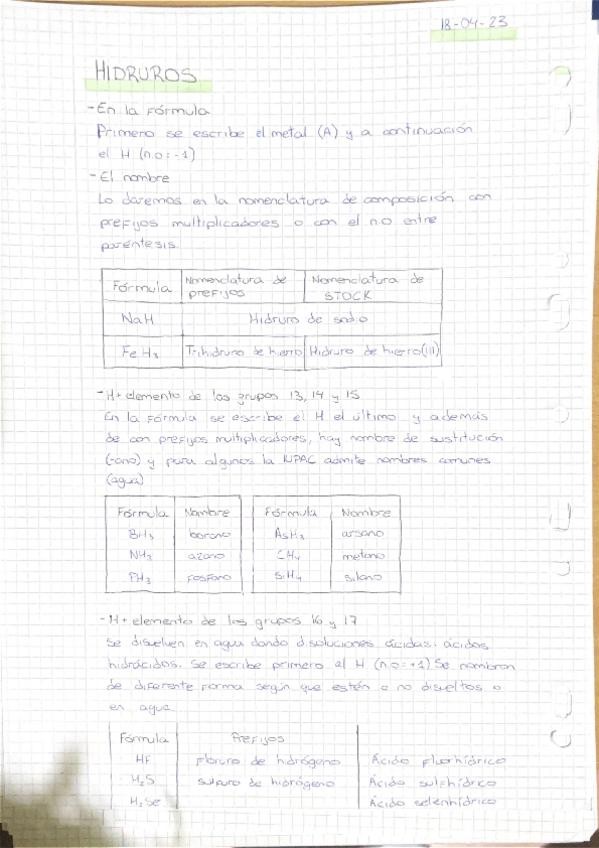 18-04-23
HIDRUROS
- En la fórmula
Primero se escribe el metal (A) y a continuación
el H (n.o = -1)
- El nombre
Lo daremos en la nomenclatura de composición con
prefijos multiplicadores o con el n.o entre
paréntesis.
Fórmula Nomenclatura de prefijos Nomenclatura de STOCK
NaH Hidruro de sodio
FeH₃ Trihidruro de hierro Hidruro de hierro(III)
- H + elemento de los grupos 13, 14 y 15
En la fórmula se escribe el H el último y además
de con prefijos multiplicadores, hay nombre de sustitución
(-ano) y para algunos la IUPAC admite nombres comunes
(agua)
Fórmula Nombre Fórmula Nombre
BH₃ borano AsH₃ arsano
NH₃ azano CH₄ metano
PH₃ fosfano SiH₄ silano
- H + elemento de los grupos 16 y 17
Se disuelven en agua dando disoluciones ácidas: ácidos
hidrácidos. Se escribe primero el H (n.o = +1) Se nombran
de diferente forma según que estén o no disueltos o
en agua
Fórmula Prefijos
HF floruro de hidrógeno Ácido fluorhídrico
H₂S sulfuro de hidrógeno Ácido sulfhídrico
H₂Se Ácido selenhídrico